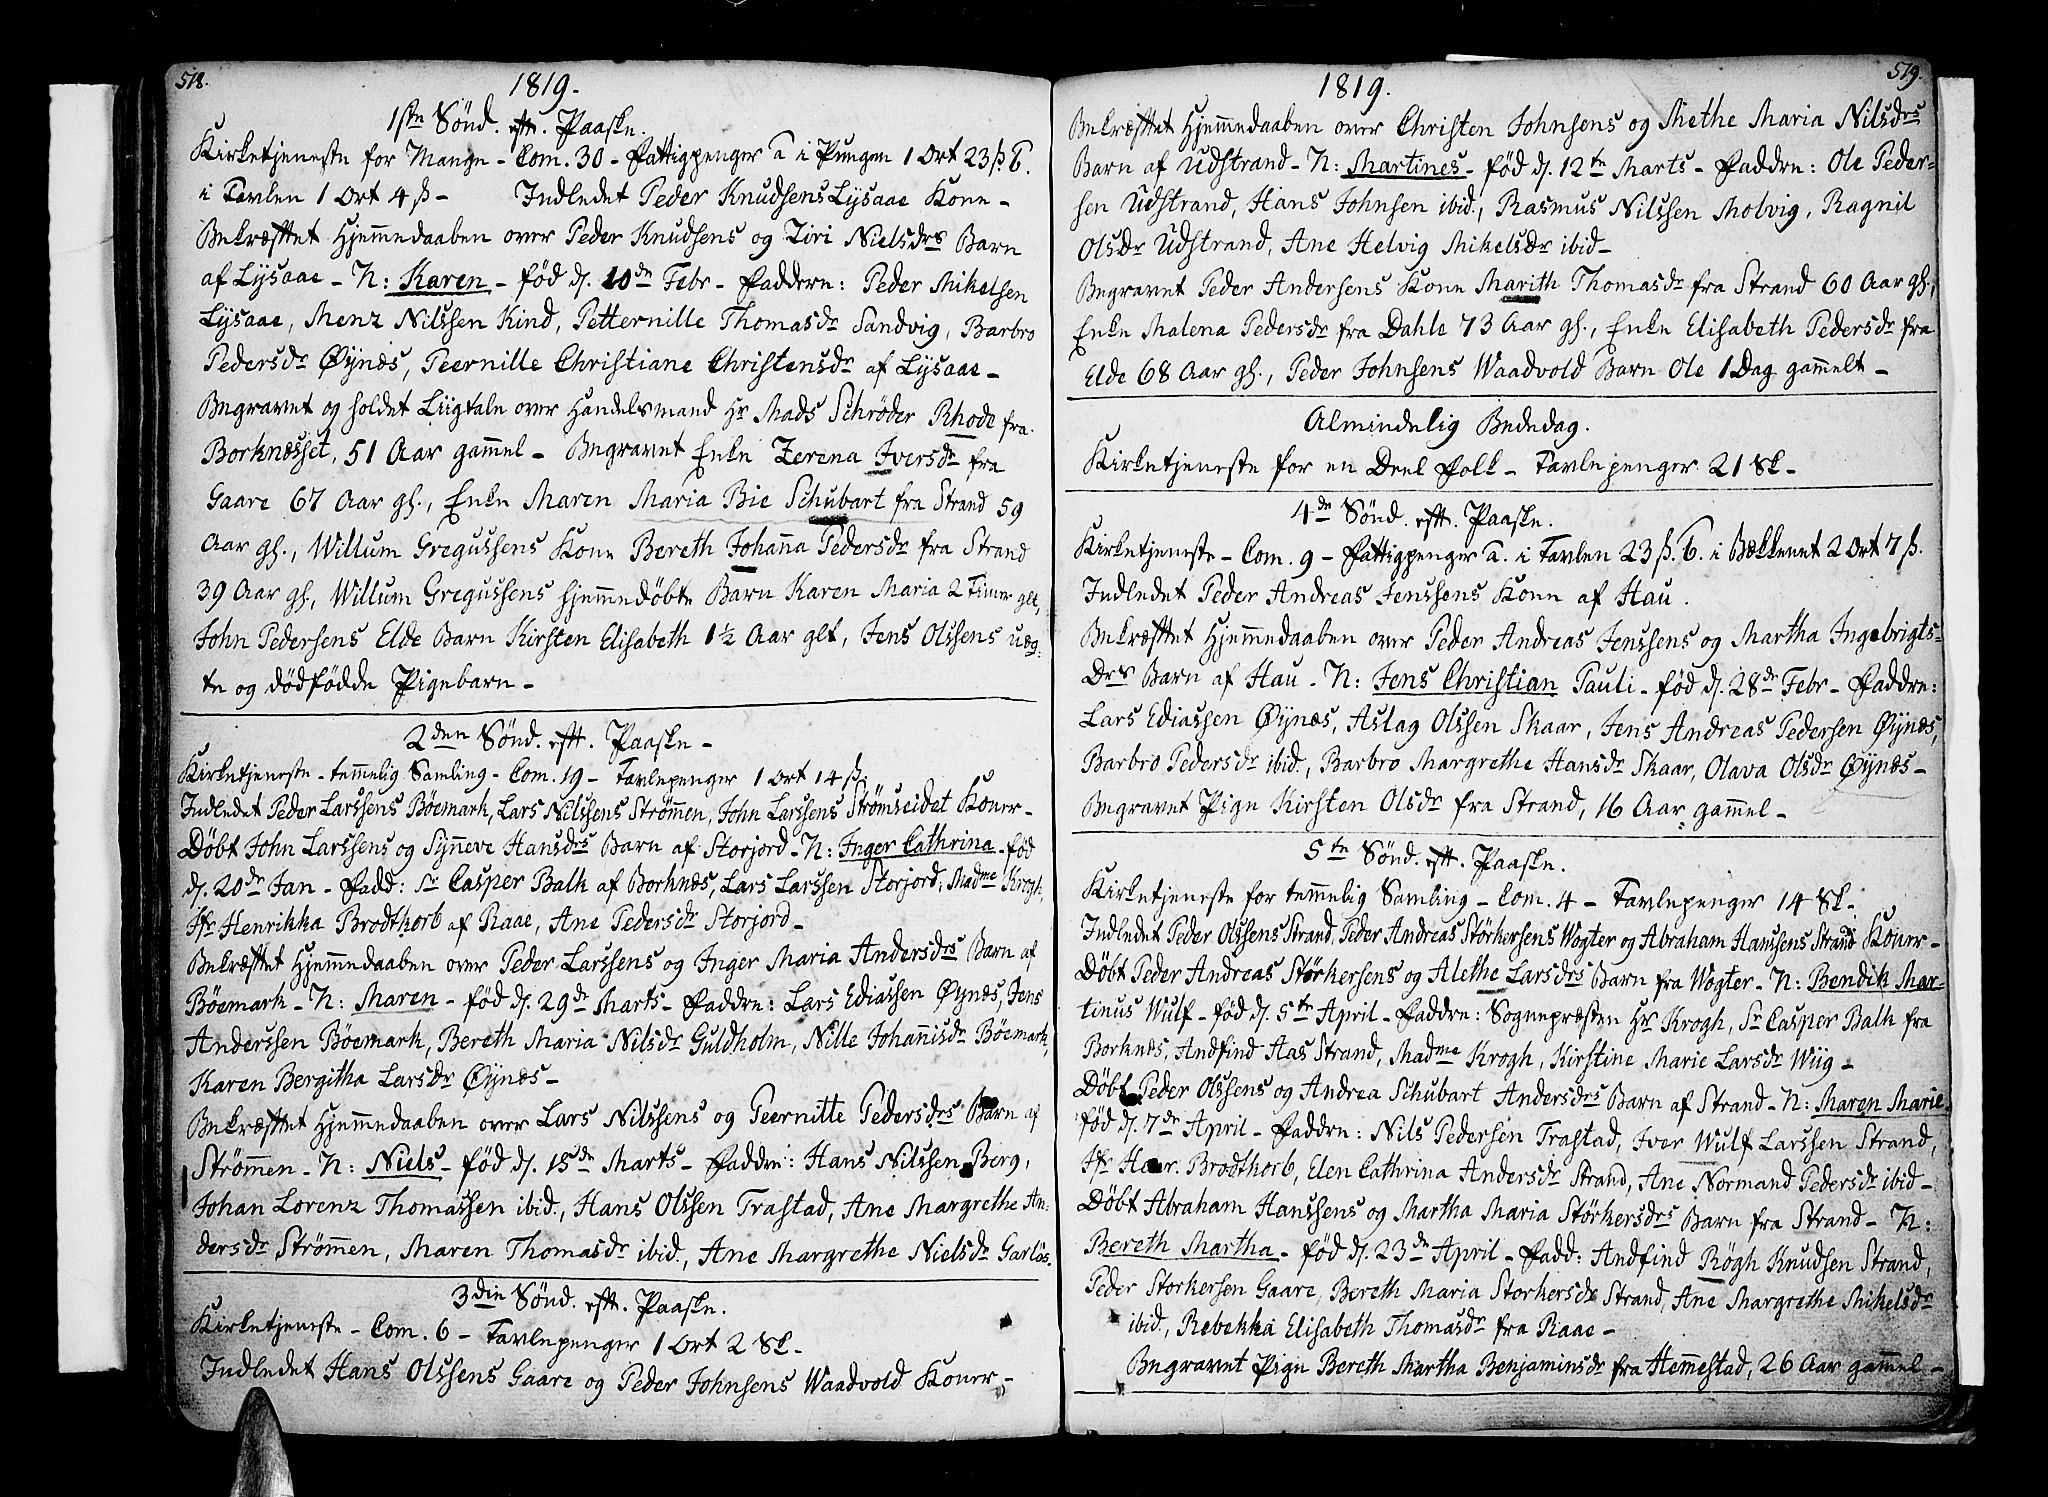 518.
1819.
1ste Sönd. eft. Paaske.
Kirketjeneste for Mange - Com. 30 - Fattigpenger a i Pungen 1 Ort 23 ß. b.
i Tavlen 1 Ort 4 ß - Indledet Peder Knudsens Lysaae Kone -
Bekræftet Hjemmedaaben over Peder Knudsens og Ziri Nielsdrs Barn
af Lysaae - N: Karen - föd d. 10de Febr - Faddern: Peder Mikelsen
Lysaae, Menz Nilssen Kind, Petternille Thomasdr Sandvig, Barbro
Pedersdr Øynæs, Peernille Christiane Christensdr af Lysaae -
Begravet og holdet Liigtale over Handelsmand Hr Mads Schröder Rhode fra
Borknæsset, 51 Aar gammel - Begravet Enke Zerena Iversdr fra
Gaare 67 Aar gl., Enke Maren Maria Bie Schubart fra Strand 59
Aar gl., Willum Gregussens Kone Bereth Johanna Pedersdr fra Strand
39 Aar gl, Willum Gregussens hjemmedöbte Barn Karen Maria 2 Timer glt,
John Pedersens Elde Barn Kirsten Elisabeth 1½ Aar glt, Jens Olssens uæg-
te og dödfödde Pigebarn -
2den Sönd. eft. Paaske -
Kirketjeneste - temmelig Samling - Com. 19 - Tavlepenger 1 Ort 14 ß.
Indledet Peder Larssens Böemark, Lars Nilssens Strömmen, John Larssens Strömseidet Koner -
Döbt John Larssens og Synneve Hansdrs Barn af Storjord - N: Inger Cathrina - föd
d. 20de Jan - Fadd: Sr Casper Balk af Borknæs, Lars Larssen Storjord, Madme Krogh,
Jfr Henrikka Brodtkorb af Raae, Ane Pedersdr Storjord -
Bekræftet Hjemmedaaben over Peder Larssens og Inger Maria Andersdrs Barn af
Böemark - N: Maren - föd d. 29de Marts - Faddre: Lars Ediassen Øynæs, Jens
Anderssen Böemark, Bereth Maria Nilsdr Guldholm, Nille Johannisdr Böemark,
Karen Bergitha Larsdr Øynæs -
Bekræftet Hjemmedaaben over Lars Nilssens og Peernille Pedersdrs Barn af
Strömmen - N: Niels - föd d. 15de Marts - Faddre: Hans Nilssen Berg,
Johan Lorenz Thomassen ibid., Hans Olssen Trastad, Ane Margrethe An-
dersdr Strömmen, Maren Thomasdr ibid., Ane Margrethe Nielsdr Garlös.
3die Sönd. eft. Paaske.
Kirketjeneste - Com. 6 - Tavlepenger 1 Ort 2 Sk. -
Indledet Hans Olssens Gaare og Peder Johnsens Waadvold Koner -
519.
1819.
Bekræftet Hjemmedaaben over Christen Johnsens og Methe Maria Nilsdrs
Barn af Udstrand - N: Martines - föd d. 12te Marts - Faddre: Ole Peder-
sen Udstrand, Hans Johnsen ibid., Rasmus Nilssen Molvig, Ragnil
Olsdr Udstrand, Ane Helvig Mikelsdr ibid -
Begravet Peder Andersens Kone Marith Thomasdr fra Strand 60 Aar gl.,
Enke Malena Pedersdr fra Dahle 73 Aar gl., Enke Elisabeth Pedersdr fra
Elde 68 Aar gl., Peder Johnsens Waadvold Barn Ole 1 Dag gammelt -
Almindelig Bededag.
Kirketjeneste for en Deel Folk - Tavlepenger 21 Sk -
4de Sönd. eft. Paaske.
Kirketjeneste - Com. 9 - Fattigpenger a. i Tavlen 23 ß. b. i Bækkenet 2 Ort 7 ß.
Indledet Peder Andreas Jenssens Kone af Hau.
Bekræftet Hjemmedaaben over Peder Andreas Jenssens og Martha Ingebrigts-
Drs Barn af Hau - N: Jens Christian Pauli - föd d. 28de Febr - Faddre:
Lars Ediassen Øynæs, Aslag Olssen Skaar, Jens Andreas Pedersen Øynæs,
Barbro Pedersdr ibid., Barbro Margrethe Hansdr Skaar, Olava Olsdr Øynæs -
Begravet Pige Kirsten Olsdr fra Strand, 16 Aar gammel -
5te Sönd. eft. Paaske.
Kirketjeneste for temmelig Samling - Com. 4 - Tavlepenger 14 Sk -
Indledet Peder Olssens Strand, Peder Andreas Störkersens Wogter og Abraham Hanssens Strand Koner -
Döbt Peder Andreas Störkersens og Alethe Larsdrs Barn fra Wogter - N: Bendik Mar-
tinus Wulf - föd d. 5te April - Faddre: Sognepræsten Hr Krogh, Sr Casper Balk fra
Borknæs, Andfind Aas Strand, Madme Krogh, Kirstine Marie Larsdr Wiig -
Döbt Peder Olssens og Andrea Schubart Andersdrs Barn af Strand - N: Maren Marie -
föd d. 7de April - Faddre: Nils Pedersen Trastad, Iver Wulf Larssen Strand,
Jfr Haar. Brodtkorb, Elen Cathrina Andersdr Strand, Ane Normand Pedersdr ibid -
Döbt Abraham Hanssens og Martha Maria Störkersdrs Barn fra Strand - N:
Bereth Martha - föd d. 23de April - Fadd: Andfind Rögh Knudsen Strand,
Peder Storkersen Gaare, Bereth Maria Storkersdr Strand, Ane Margrethe Mikelsdr
ibid., Rebekka Elisabeth Thomasdr fra Raae -
Begravet Pige Bereth Martha Benjaminsdr fra Hemmestad, 26 Aar gammel -